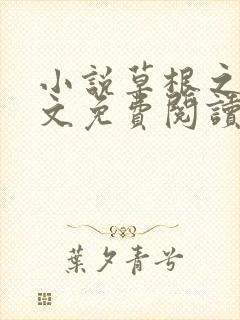 小說草根之
文免費閱讀
葉夕青兮